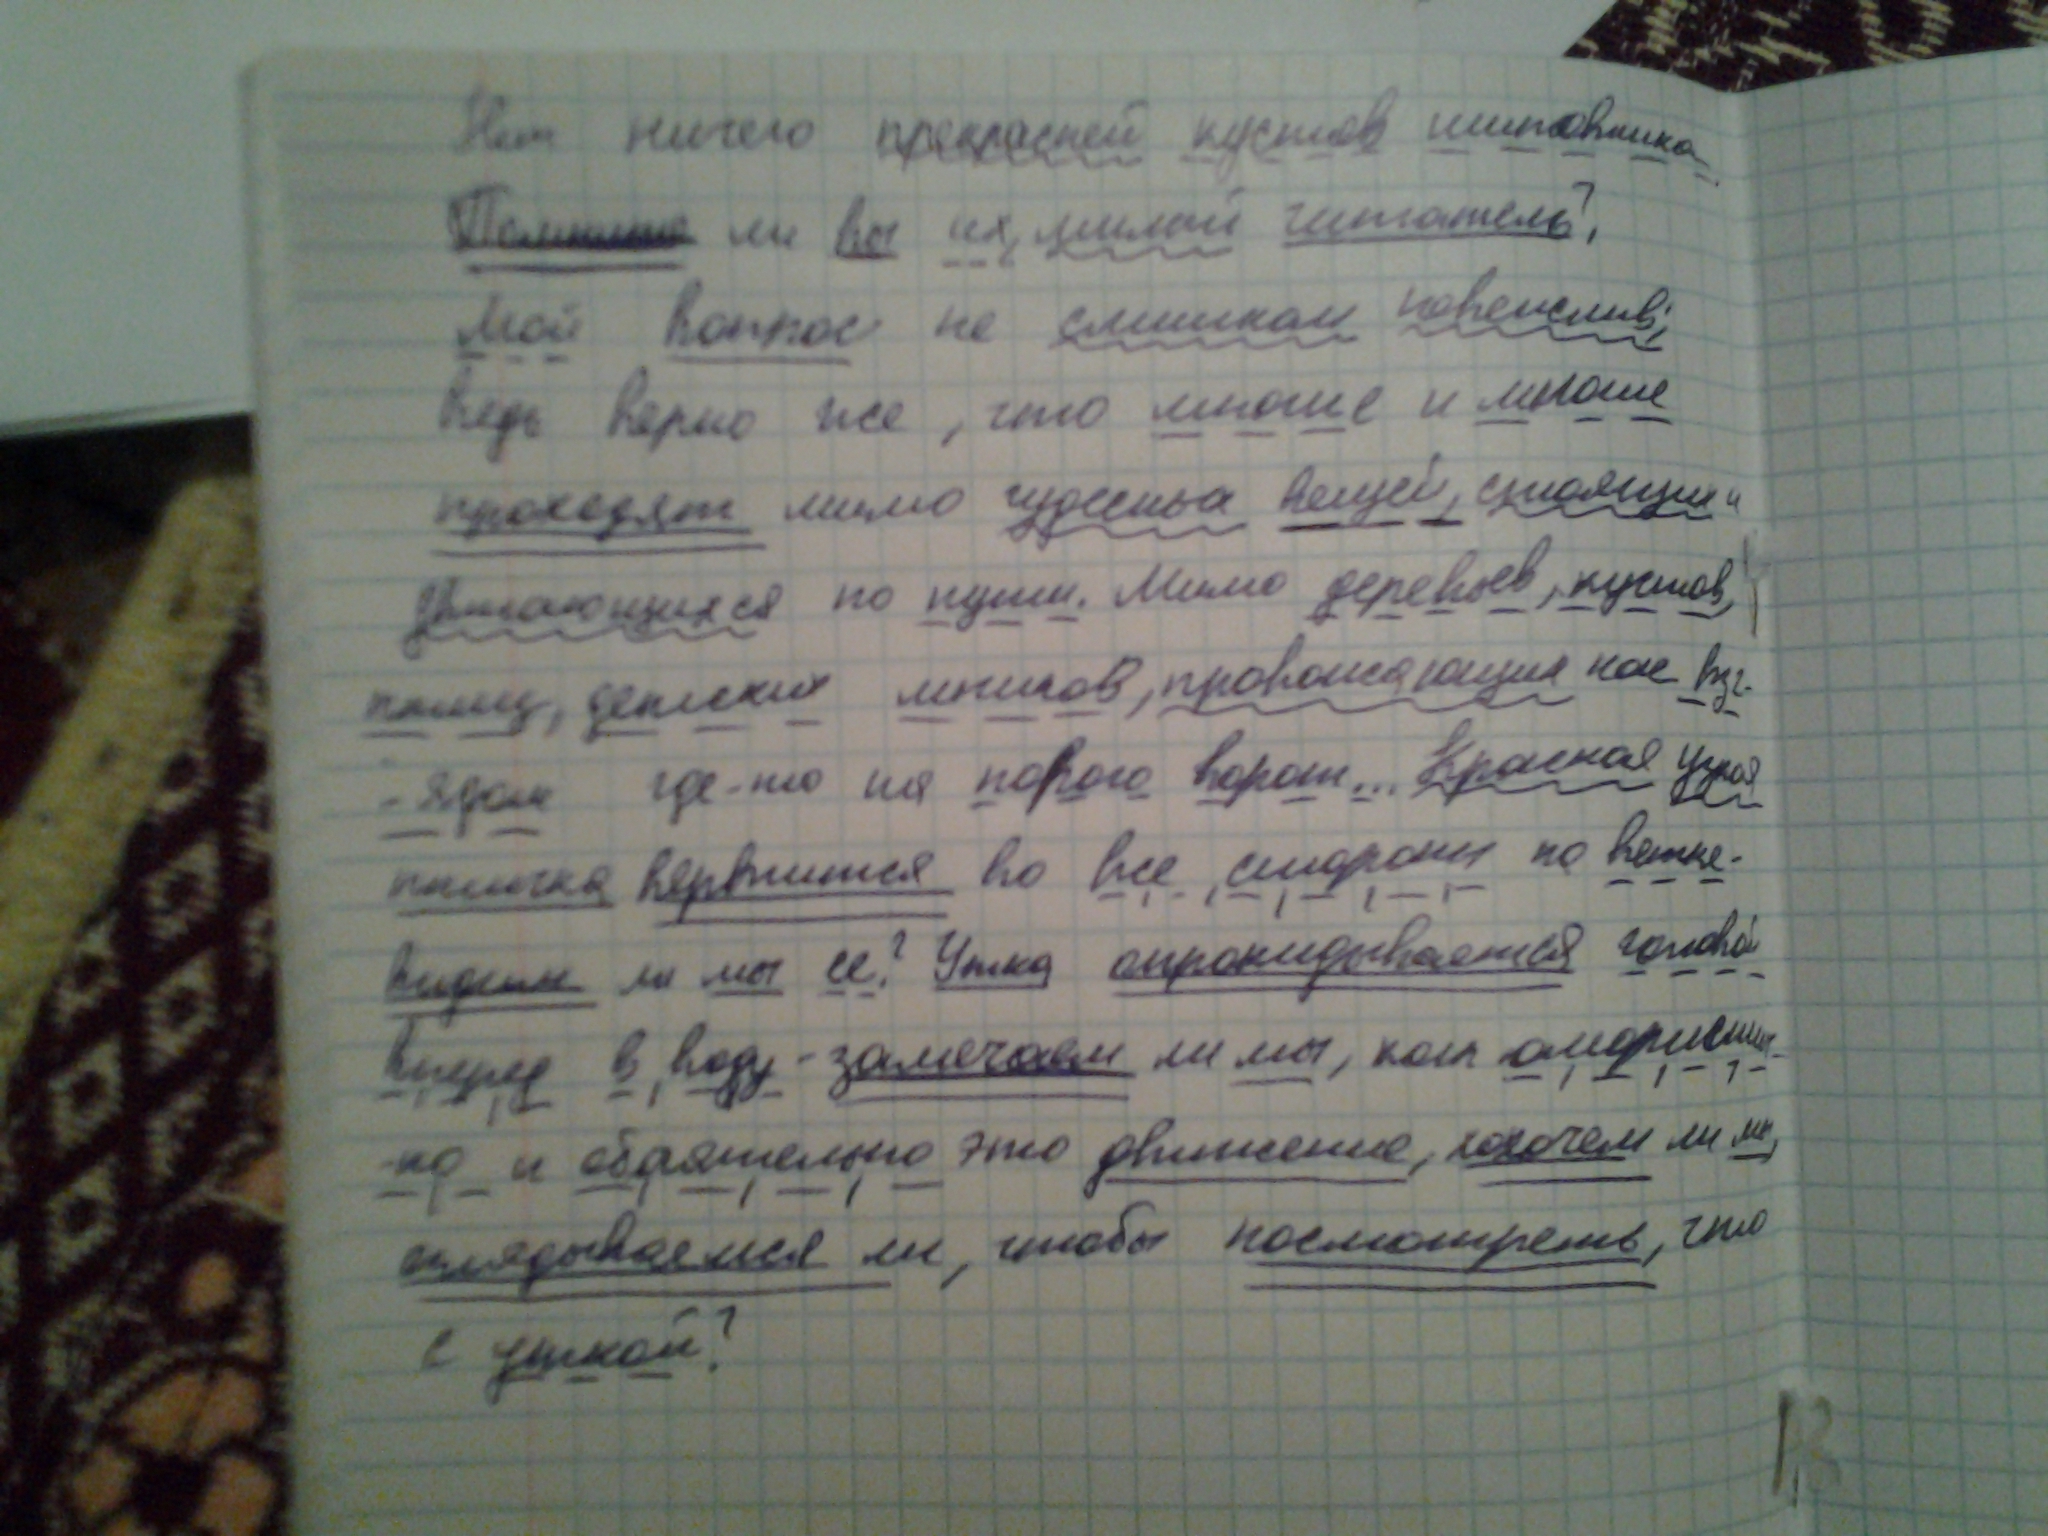 Нет ничего прекрасней кустов шиповника.
Помните ли вы их, милый читатель?
Мой вопрос не слишком невежлив;
ведь верно же, что многие и многие
проходят мимо чудесных вещей, стоящих и
двигающихся по пути. Мимо деревьев, кустов,
птиц, детских ликов, провожающих нас взг-
-лядом где-то на пороге ворот... Красная узкая
птичка вертится во все стороны по ветке-
видим ли мы ее? Утка опрокидывается головой
вперед в воду - замечаем ли мы, как юмористич-
-но и обаятельно это движение, хохочем ли мы,
оглядываемся ли, чтобы посмотреть, что
с уткой?